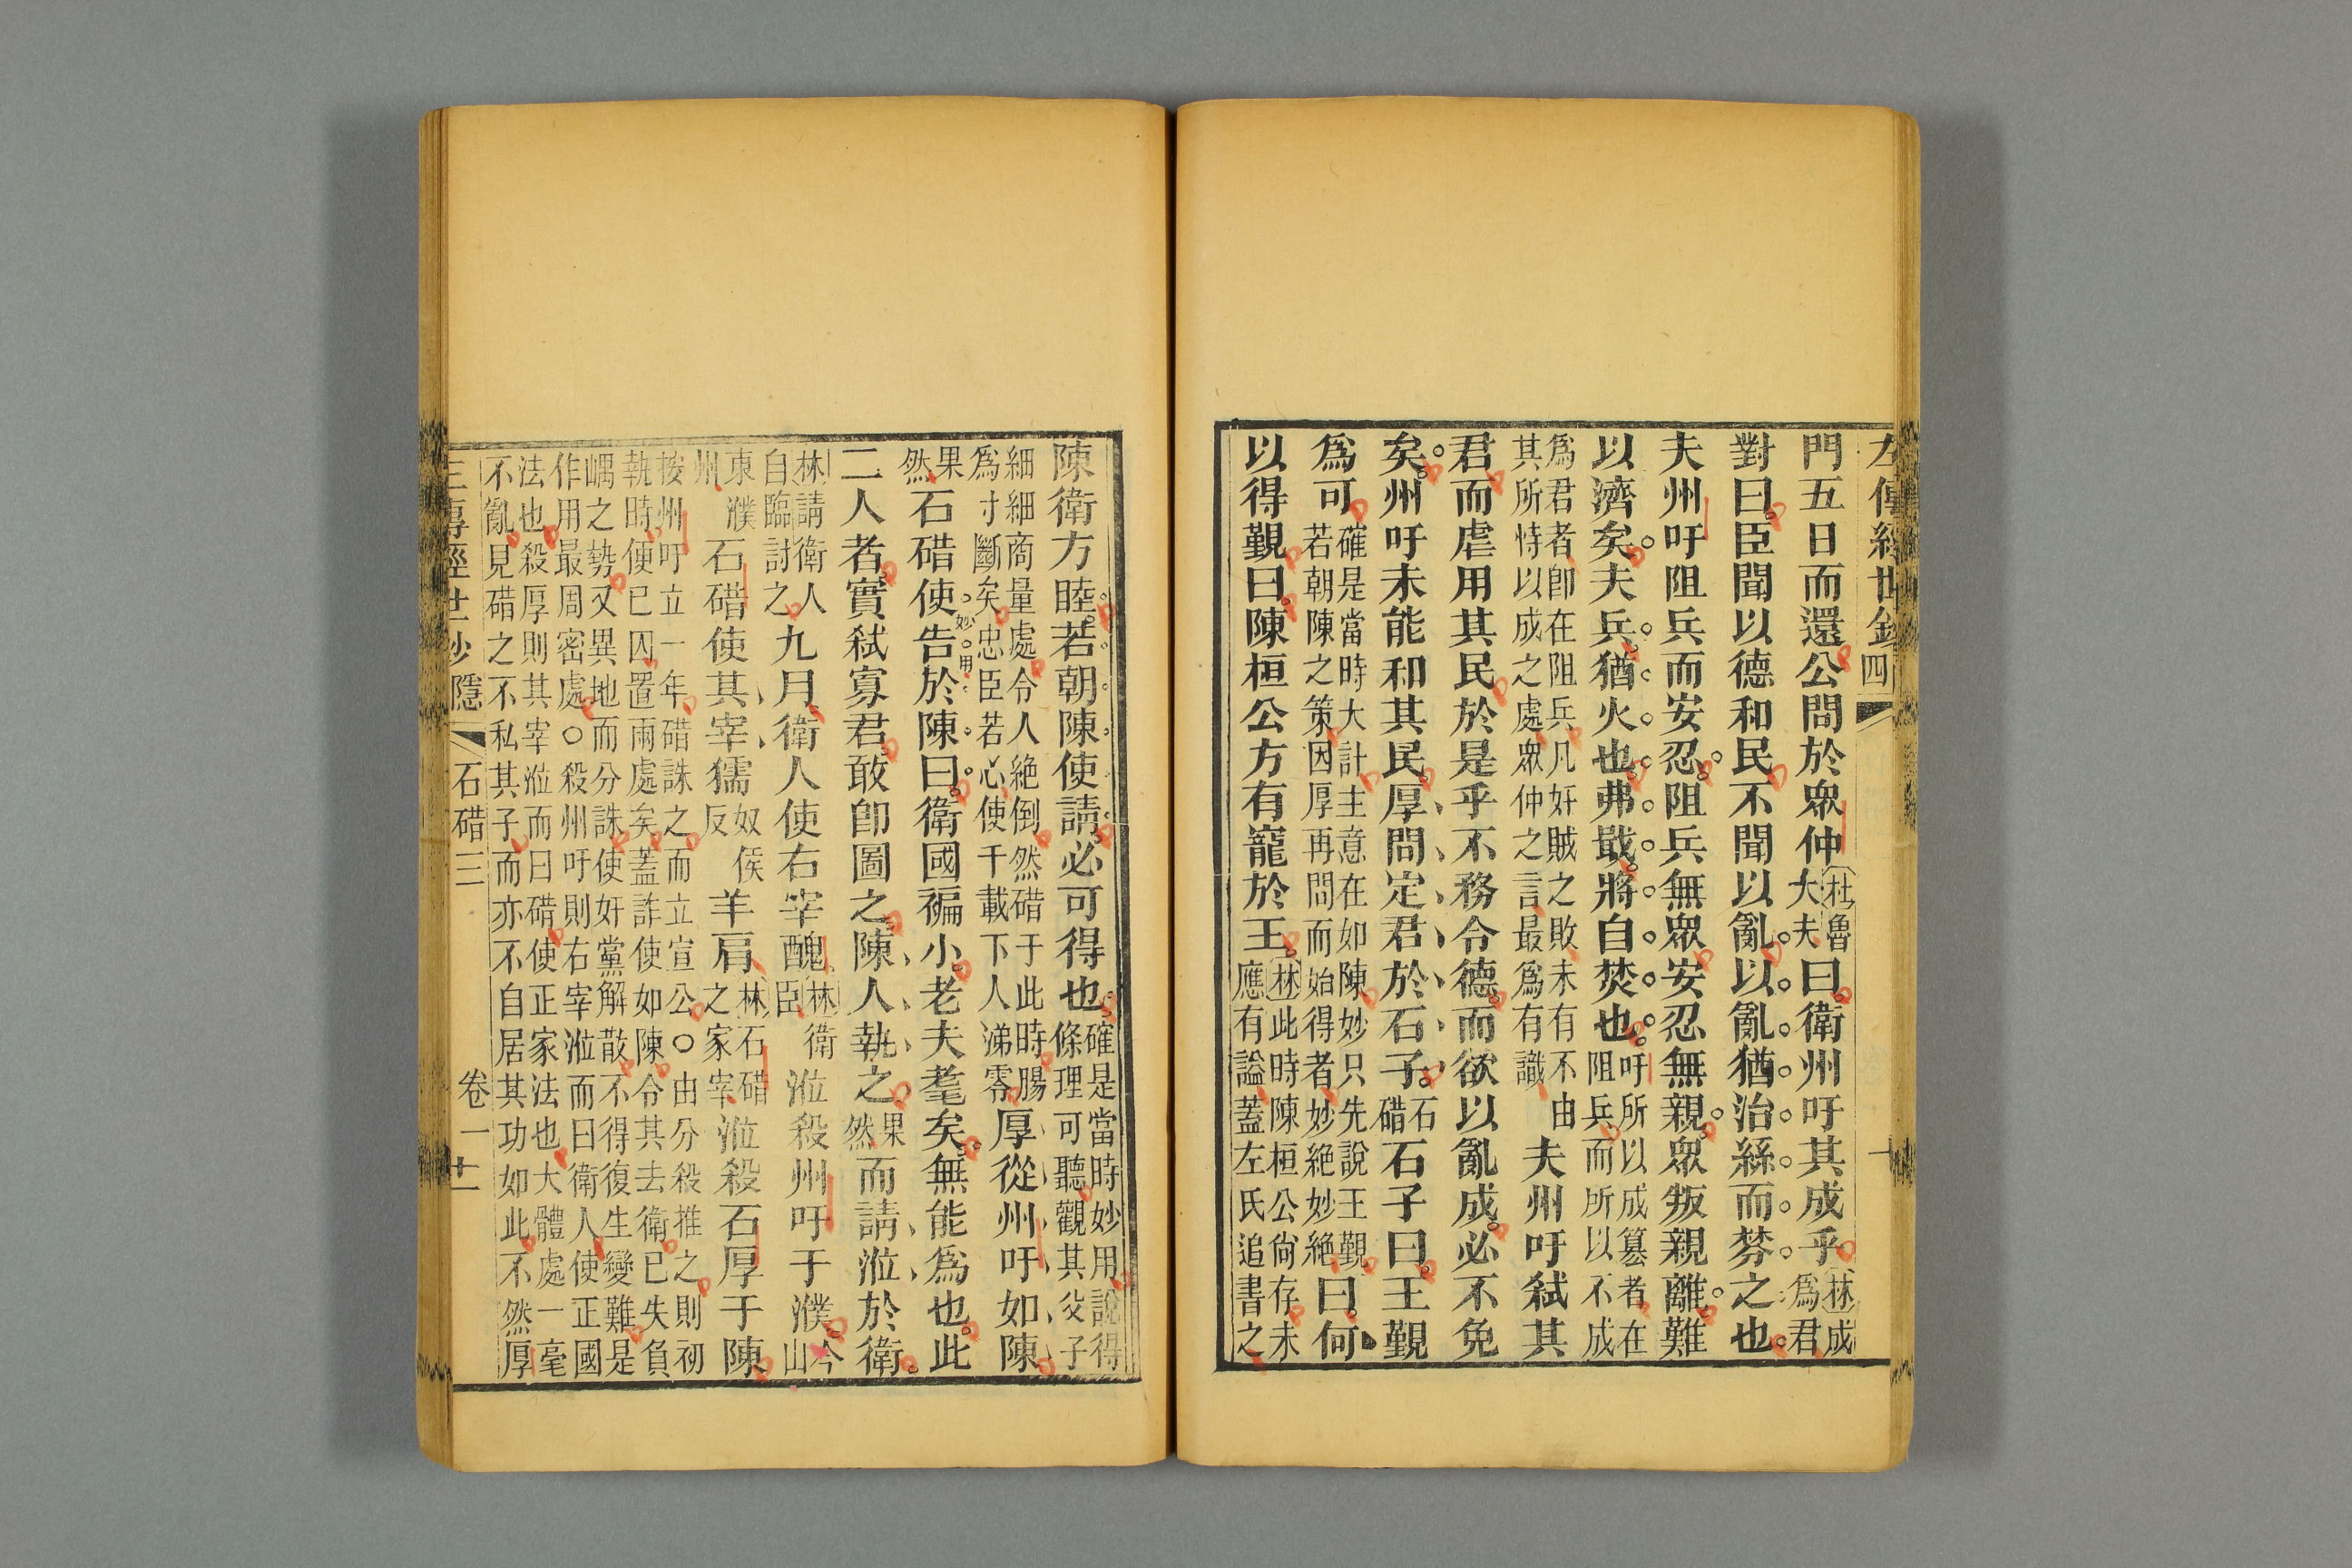 左傳經世鈔 四 十
門五日而還公問於眾仲杜魯大夫曰衛州吁其成乎林成爲君
對曰臣聞以德和民不聞以亂以亂猶治絲而棼之也
夫州吁阻兵而安忍阻兵無眾安忍無親眾叛親離難
以濟矣夫兵猶火也弗戢將自焚也吁所以成篡者在阻兵而所以不成
爲君者卽在阻兵凡奸賊之敗未有不由其所恃以成之處眾仲之言最爲有識夫州吁弒其
君而虐用其民於是乎不務令德而欲以亂成必不免
矣州吁未能和其民厚問定君於石子石碏石子曰王覲
爲可確是當時大計主意在如陳妙只先說王覲若朝陳之策因厚再問而始得者妙絕妙絕曰何
以得覲曰陳桓公方有寵於王林此時陳桓公尙存未應有謚蓋左氏追書之
陳衛方睦若朝陳使請必可得也確是當時妙用說得條理可聽觀其父子
細細商量處令人絕倒然碏于此時腸爲寸斷矣忠臣若心使千載下人涕零厚從州吁如陳
果然石碏使告於陳曰妙用衛國褊小老夫耄矣無能爲也此
二人者實弒寡君敢卽圖之陳人執之果然而請涖於衛
林請衛人自臨討之九月衛人使右宰醜林衛臣涖殺州吁于濮今山
東濮州石碏使其宰獳奴侯反羊肩林石碏之家宰涖殺石厚于陳
按州吁立一年碏誅之而立宣公○由分殺推之則初
執時便已囚置兩處矣蓋詐使如陳令其去衛已失負
嵎之勢又異地而分誅使奸黨解散不得復生變難是
作用最周密處○殺州吁則右宰涖而曰衛人使正國
法也殺厚則其宰涖而曰碏使正家法也大體處一毫
不亂見碏之不私其子而亦不自居其功如此不然厚
隱 石碏三 卷一 十一